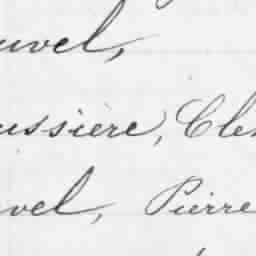 uvel,
ussière, Cle
vel, Pierre